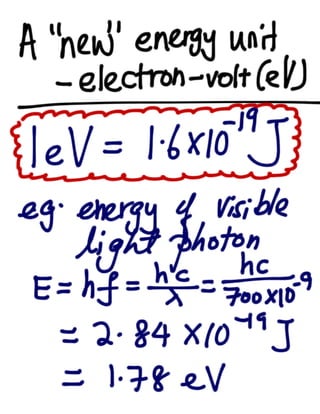 A "new" energy unit
- electron-volt (eV)
1eV = 1.6x10^-19 J
eg. energy of visible
light photon
E = hf = hc/λ = hc/700x10^-9
= 2.84 x10^-19 J
= 1.78 eV